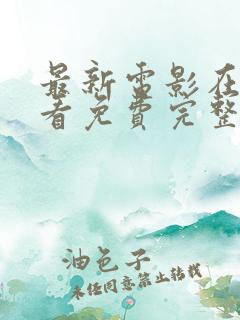 最新雷影在
看免费完整
油色子
未经同意禁止转载